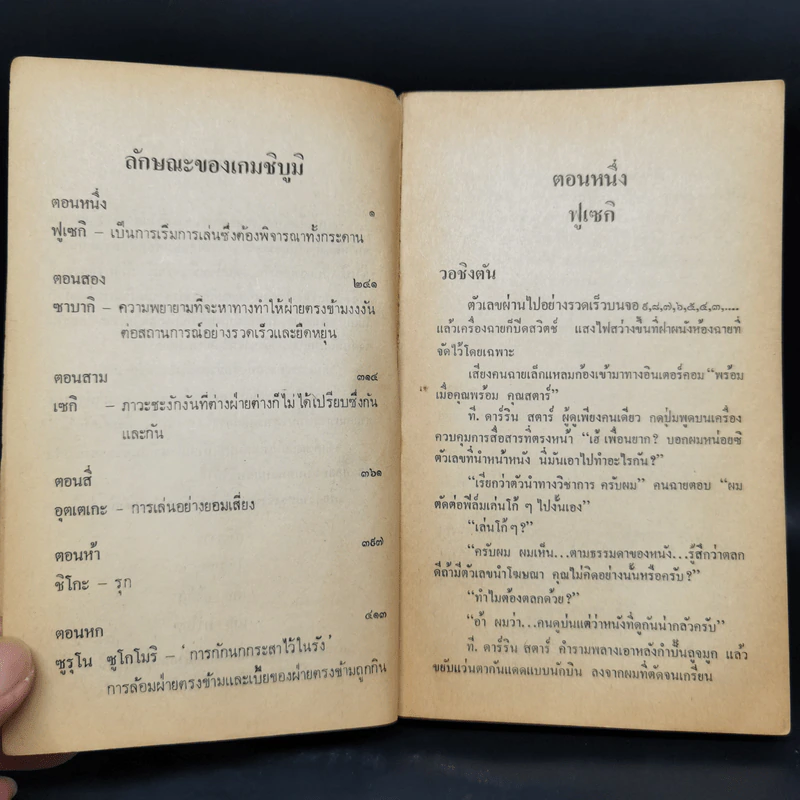 ลักษณะของเกมชิบูมิ
ตอนหนึ่ง ๑
ฟูเซกิ – เป็นการเริ่มการเล่นซึ่งต้องพิจารณาทั้งกระดาน
ตอนสอง ๒๔๑
ซาบากิ – ความพยายามที่จะหาทางทำให้ฝ่ายตรงข้ามงงงัน
ต่อสถานการณ์อย่างรวดเร็วและยืดหยุ่น
ตอนสาม ๓๑๔
เซกิ – ภาวะชะงักงันที่ต่างฝ่ายต่างก็ไม่ได้เปรียบซึ่งกัน
และกัน
ตอนสี่ ๓๖๑
อุตเตเกะ – การเล่นอย่างยอมเสี่ยง
ตอนห้า ๓๙๗
ชิโกะ – รุก
ตอนหก ๔๑๓
ซูรุโน ซูโกโมริ – ‘การกักนกกระสาไว้ในรัง’
การล้อมฝ่ายตรงข้ามและเบี้ยของฝ่ายตรงข้ามถูกกิน
ตอนหนึ่ง
ฟูเซกิ
วอชิงตัน
ตัวเลขผ่านไปอย่างรวดเร็วบนจอ ๙,๘,๗,๖,๕,๔,๓,....
แล้วเครื่องฉายก็ปิดสวิตช์ แสงไฟสว่างขึ้นที่ฝาผนังห้องฉายที่
จัดไว้โดยเฉพาะ
เสียงคนฉายเล็กแหลมก้องเข้ามาทางอินเตอร์คอม “พร้อม
เมื่อคุณพร้อม คุณสตาร์”
ที. ดาร์ริน สตาร์ ผู้ดูเพียงคนเดียว กดปุ่มพูดบนเครื่อง
ควบคุมการสื่อสารที่ตรงหน้า “เฮ้ เพื่อนยาก? บอกผมหน่อยซิ
ตัวเลขที่นำหน้าหนัง นี่มันเอาไปทำอะไรกัน?”
“เรียกว่าตัวนำทางวิชาการ ครับผม” คนฉายตอบ “ผม
ตัดต่อฟิล์มเล่นโก้ ๆ ไปงั้นเอง”
“เล่นโก้ๆ?”
“ครับผม ผมเห็น...ตามธรรมดาของหนัง...รู้สึกว่าตลก
ดีถ้ามีตัวเลขนำโฆษณา คุณไม่คิดอย่างนั้นหรือครับ?”
“ทำไมต้องตลกด้วย?”
“อ้า ผมว่า...คนดูบ่นแต่ว่าหนังที่ดูกันน่ากลัวครับ”
ที. ดาร์ริน สตาร์ คำรามพลางเอาหลังกำปั้นลูจมูก แล้ว
ขยับแว่นตากันแดดแบบนักบิน ลงจากผมที่ตัดจนเกรียน